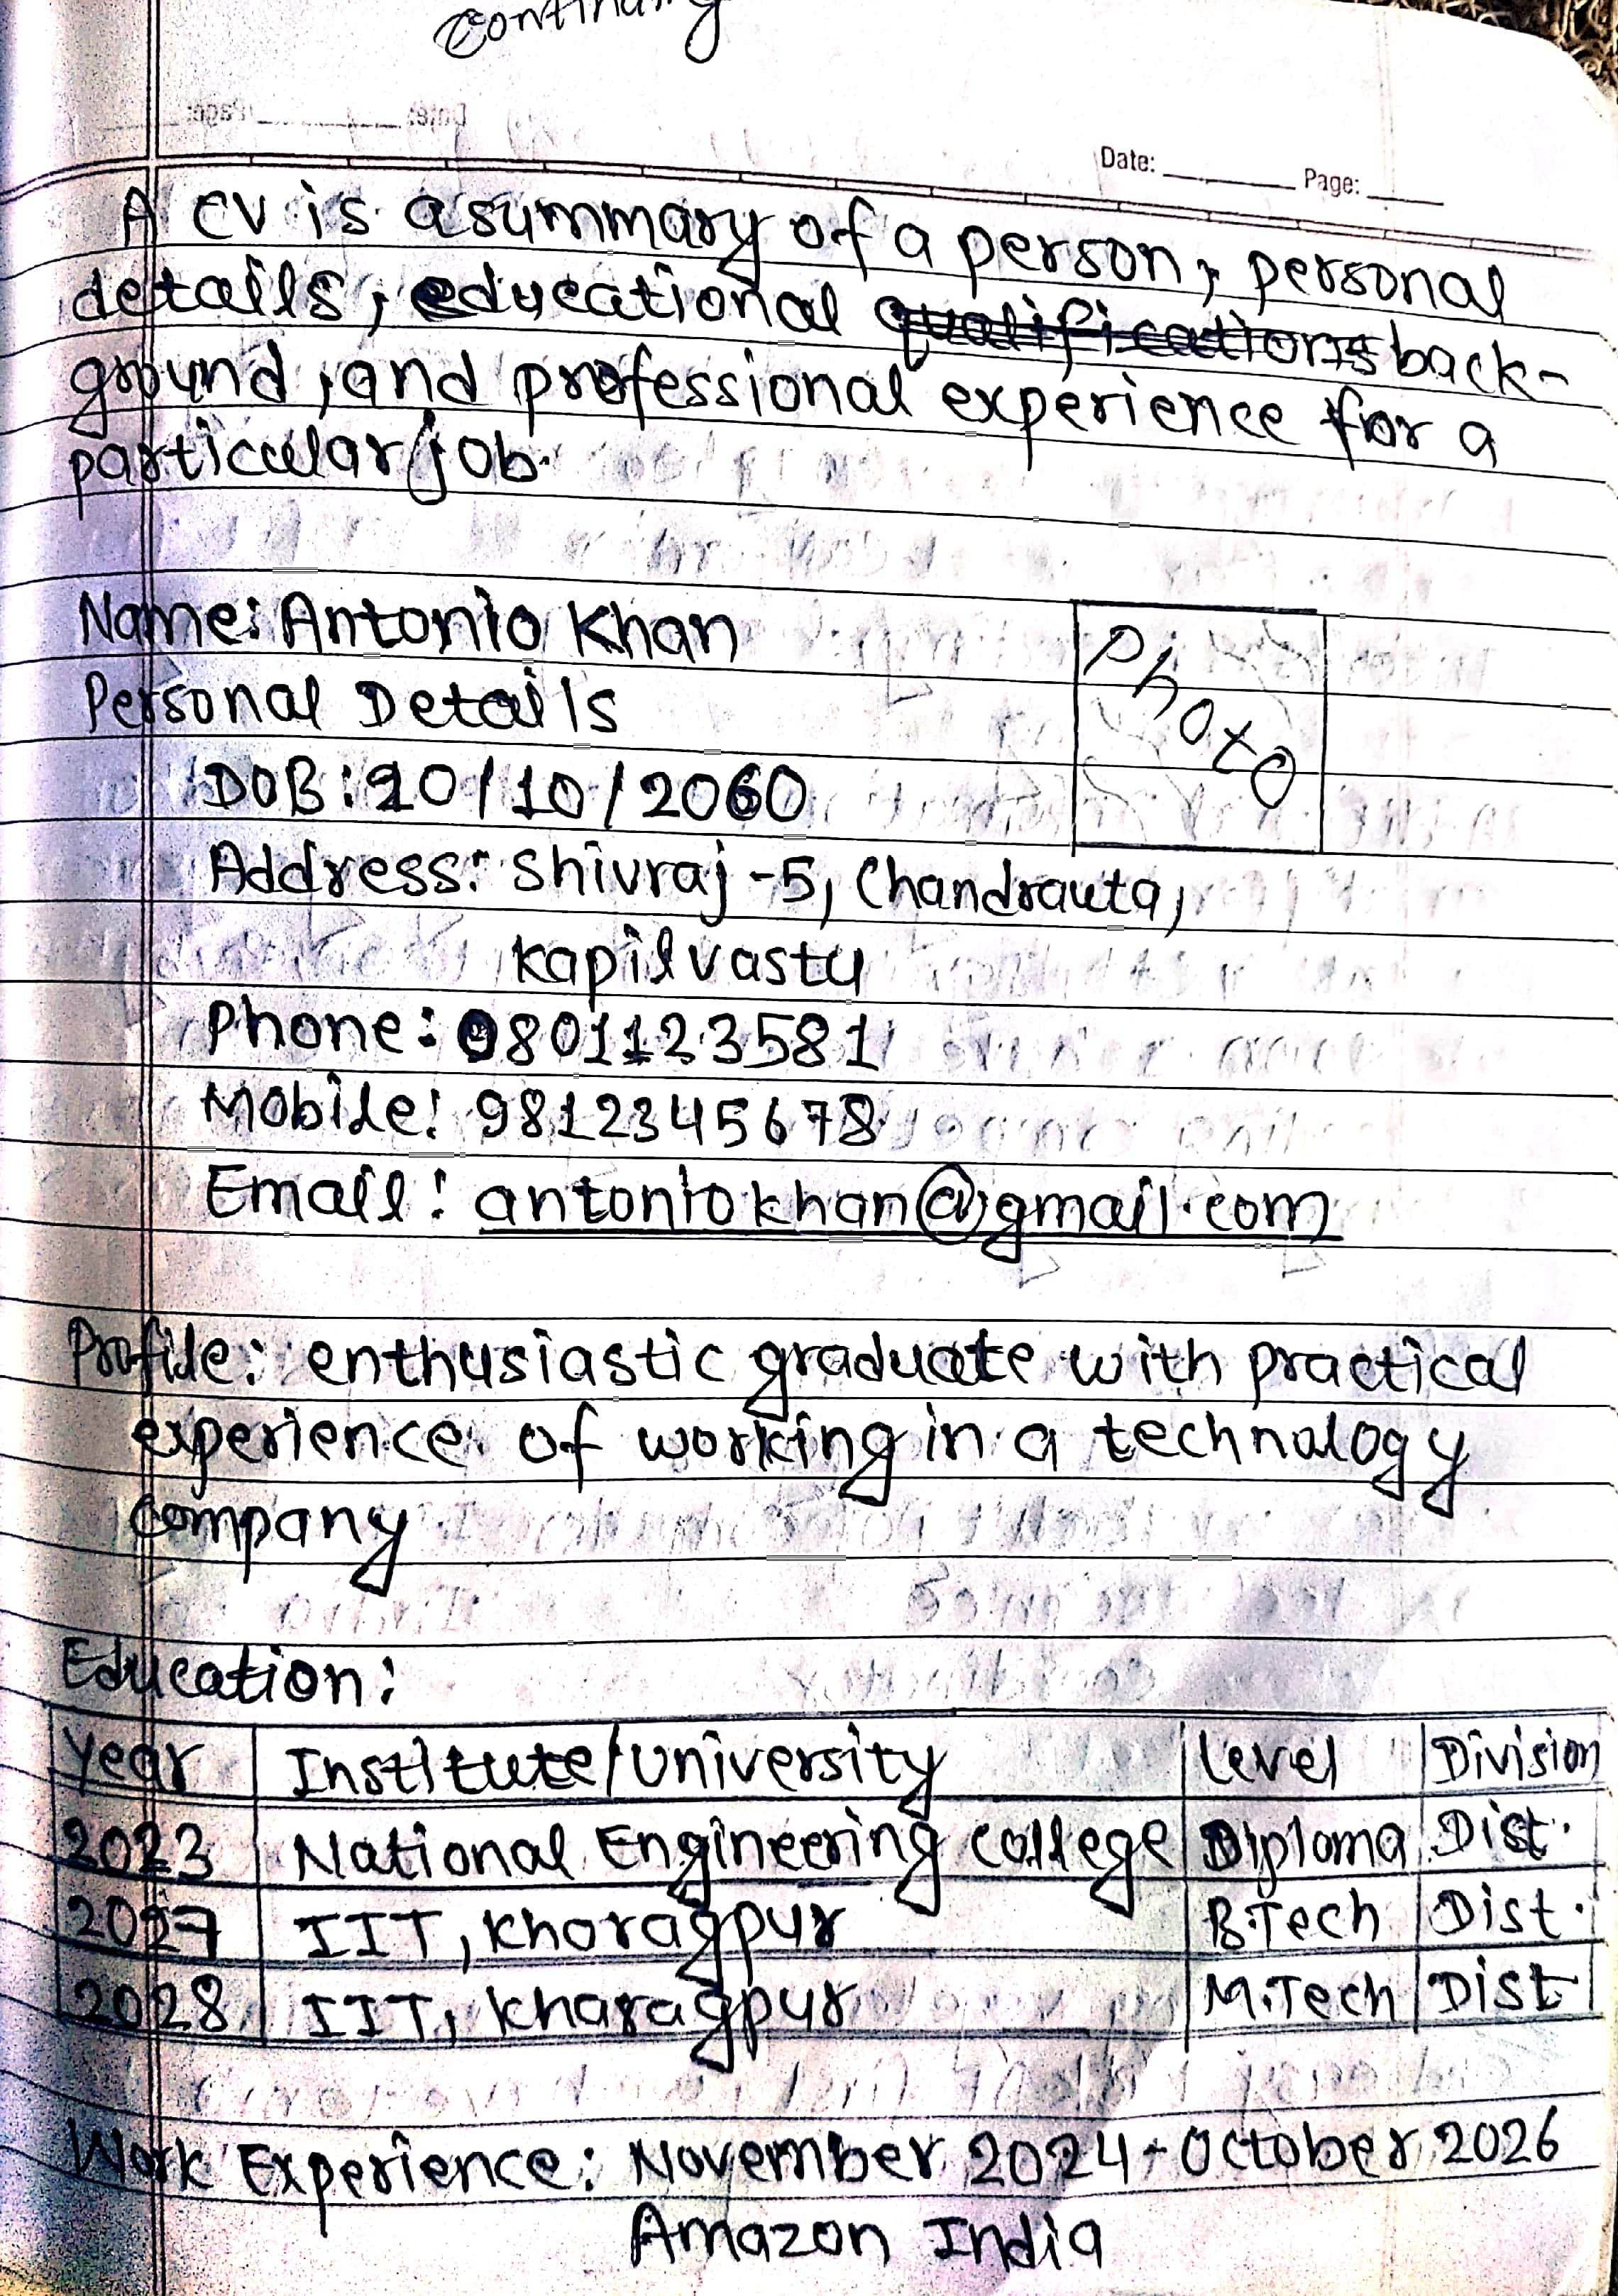 continuity
Date: Page:
A CV is a summary of a person, personal
details, educational qualifications back-
ground, and professional experience for a
particular job.
Name: Antonio Khan
Photo
Personal Details
DOB: 20/10/2060
Address: Shivraj-5, Chandrauta,
Kapilvastu
Phone: 0801123581
Mobile: 9812345678
Email: antoniokhan@gmail.com
Profile: enthusiastic graduate with practical
experience of working in a technology
company
Education:
Year Institute/University Level Division
2023 National Engineering College Diploma Dist.
2027 IIT, Kharagpur B.Tech Dist.
2028 IIT, Kharagpur M.Tech Dist.
Work Experience: November 2024 - October 2026
Amazon India